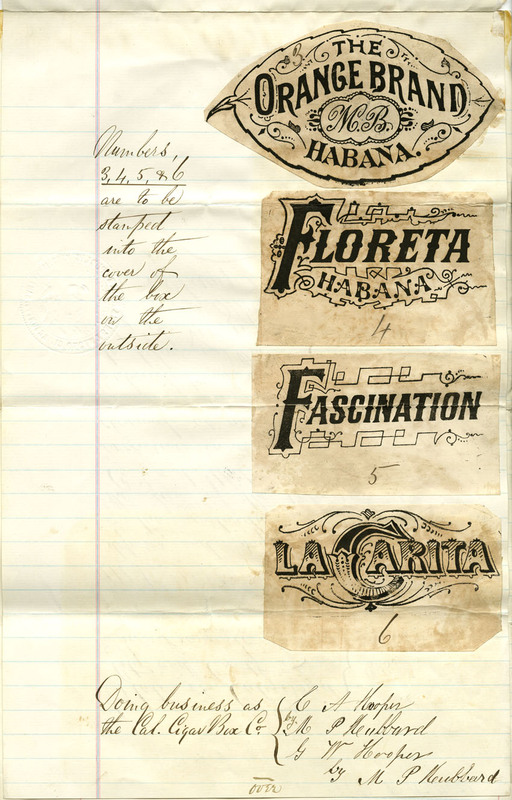 THE
ORANGE BRAND
M.B.
HABANA.
Numbers,
3, 4, 5, & 6
are to be
stamped
into the
cover of
the box
on the
outside.
FLORETA
HABANA
4
FASCINATION
5
LA CARITA
6
Doing business as
the Cal. Cigar Box Co.
C A Hooper
by M P Hubbard
G W Hooper
by M P Hubbard
over